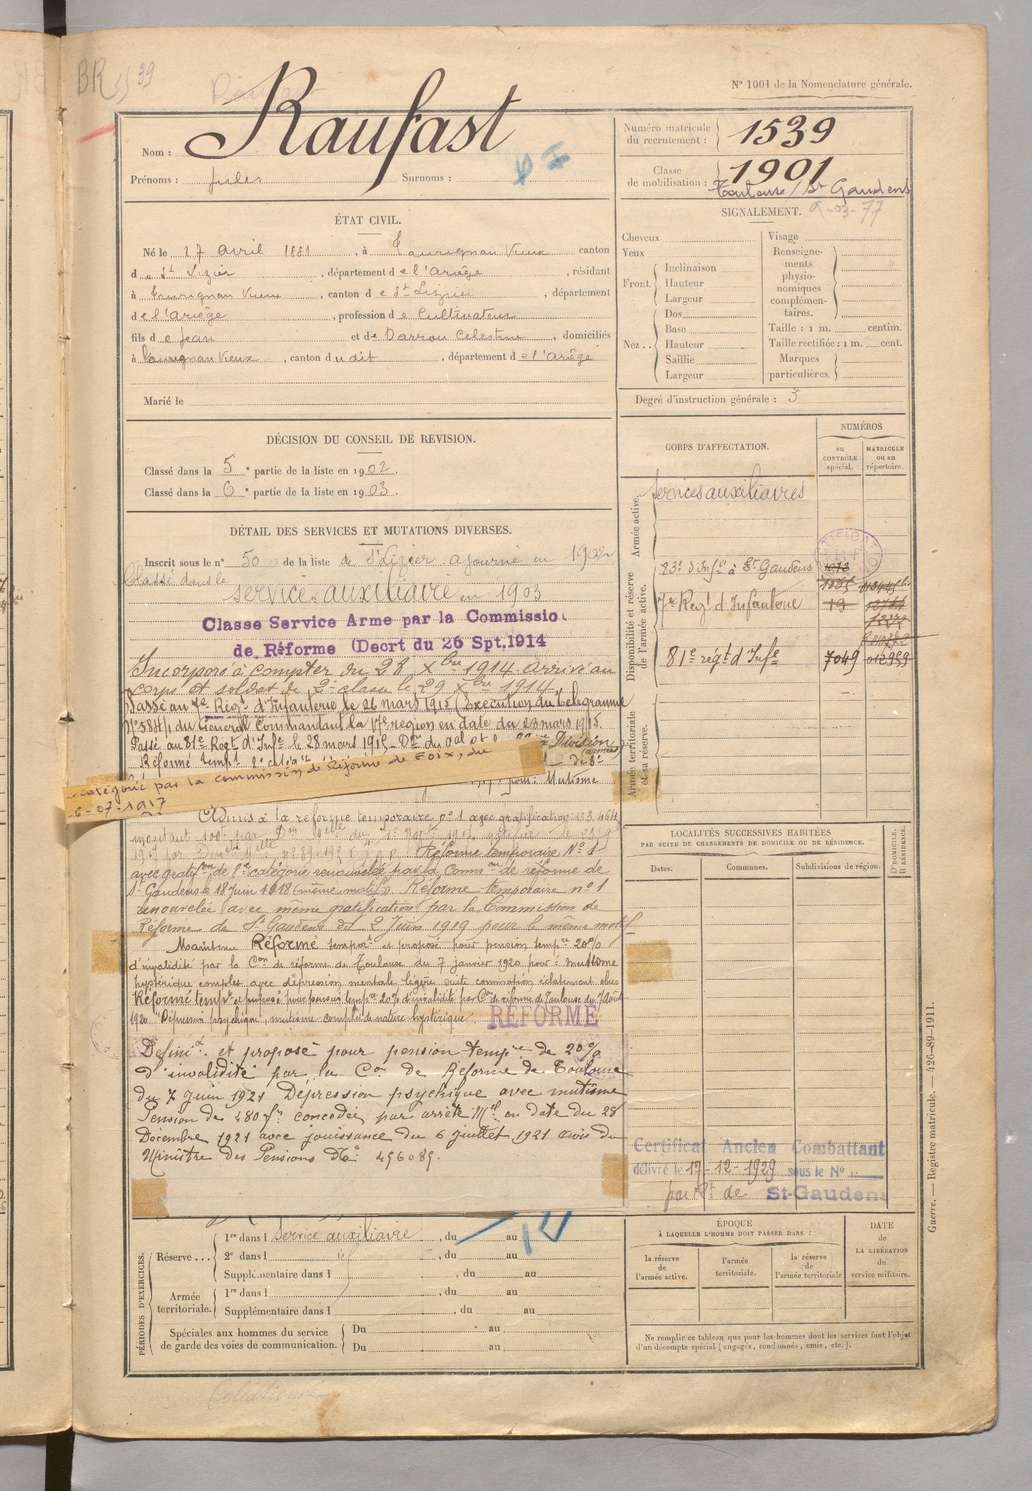 BR 1539
N° 1001 de la Nomenclature générale.
Nom : Raufast
Prénoms : Jules Surnoms :
Numéro matricule du recrutement : 1539
Classe de mobilisation : 1901
Toulouse / St Gaudens
ÉTAT CIVIL.
Né le 27 avril 1881, à Taurignan Vieux canton
de St Lizier, département de l'Ariège, résidant
à Taurignan Vieux, canton de St Lizier, département
de l'Ariège, profession de Cultivateur
fils de Jean et de Darrou Celestine, domiciliés
à Taurignan Vieux, canton du dit, département de l'Ariège
Marié le
SIGNALEMENT.
Cheveux
Yeux
Front. Inclinaison
Hauteur
Largeur
Nez.. Dos
Base
Hauteur
Saillie
Largeur
Visage
Renseignements physionomiques complémentaires.
Taille : 1 m. centim.
Taille rectifiée : 1 m. cent.
Marques particulières.
Degré d'instruction générale : 3
DÉCISION DU CONSEIL DE REVISION.
Classé dans la 5e partie de la liste en 1902.
Classé dans la 6e partie de la liste en 1903.
DÉTAIL DES SERVICES ET MUTATIONS DIVERSES.
Inscrit sous le n° 50 de la liste de St Lizier ajourné en 1902
Classé dans le
service auxiliaire en 1903
Classe Service Arme par la Commissio
de Réforme (Decrt du 26 Spt.1914
Incorporé à compter du 28 Xbre 1914. Arrivé au
corps et soldat de 2e classe le 29 Xbre 1914.
Passé au 7e Regt d'Infanterie le 26 mars 1915 (Execution du Télégramme
du Général Commandant la 17e région en date du 23 mars 1915.
Passé au 81e Regt d'Infie le 28 mars 1915
Réformé tempre
catégorie par la commission de Réforme de Foix, du
6-07-1917
pour : Mutisme
Admis à la réforme temporaire n° 1 avec gratification
Réforme temporaire N° 1
avec gratifon de 1e catégorie renouvelée par la Common de réforme de
St Gaudens le 18 Juin 1918 (même motif). Réforme temporaire n° 1
renouvelée avec même gratification par la Commission de
Réforme de St Gaudens du 2 Juin 1919 pour le même motif
Maintenu Réformé tempore et proposé pour pension tempre 20%
d'invalidité par la Con de réforme de Toulouse du 7 janvier 1920 pour : mutisme
hystérique complet avec dépression mentale légère suite commotion éclatement obus
Réformé tempre et proposé pour pension tempre 20% d'invalidité par Con de réforme de Toulouse du
1920 "Dépression psychique, mutisme complet de nature hystérique".
RÉFORMÉ
Définif. et proposé pour pension tempre de 20%
d'invalidité par la Con de Réforme de Toulouse
du 7 Juin 1921 Dépression psychique avec mutisme
Pension de 480 frs concédée par arrêté Mel en date du 28
Décembre 1921 avec jouissance du 6 Juillet 1921 avis du
Ministre des Pensions N° 456085.
CORPS D'AFFECTATION.
NUMÉROS
au CONTRÔLE spécial.
MATRICULE ou au répertoire.
Armée active.
services auxiliaires
Disponibilité et réserve de l'armée active.
83e d'Infie à St Gaudens
7e Regt d'Infanterie
81e régt d'Infie 7049
Armée territoriale et sa réserve.
LOCALITÉS SUCCESSIVES HABITÉES
PAR SUITE DE CHANGEMENTS DE DOMICILE OU DE RÉSIDENCE.
Dates. Communes. Subdivisions de région.
D. DOMICILE. R. RÉSIDENCE.
Certificat Ancien Combattant
délivré le 17-12-1929 sous le N°
par St-Gaudens
PÉRIODES D'EXERCICES.
Réserve... 1re dans l service auxiliaire, du au
2e dans l id, du au
Supplémentaire dans l, du au
Armée territoriale. 1re dans l, du au
Supplémentaire dans l, du au
Spéciales aux hommes du service de garde des voies de communication. Du au
Du au
ÉPOQUE
À LAQUELLE L'HOMME DOIT PASSER DANS :
la réserve de l'armée active.
l'armée territoriale.
la réserve de l'armée territoriale
DATE DE LA LIBÉRATION du service militaire.
Ne remplir ce tableau que pour les hommes dont les services font l'objet
d'un décompte spécial (engagés, condamnés, omis, etc.).
Guerre. — Registre matricule. — 426-89-1911.